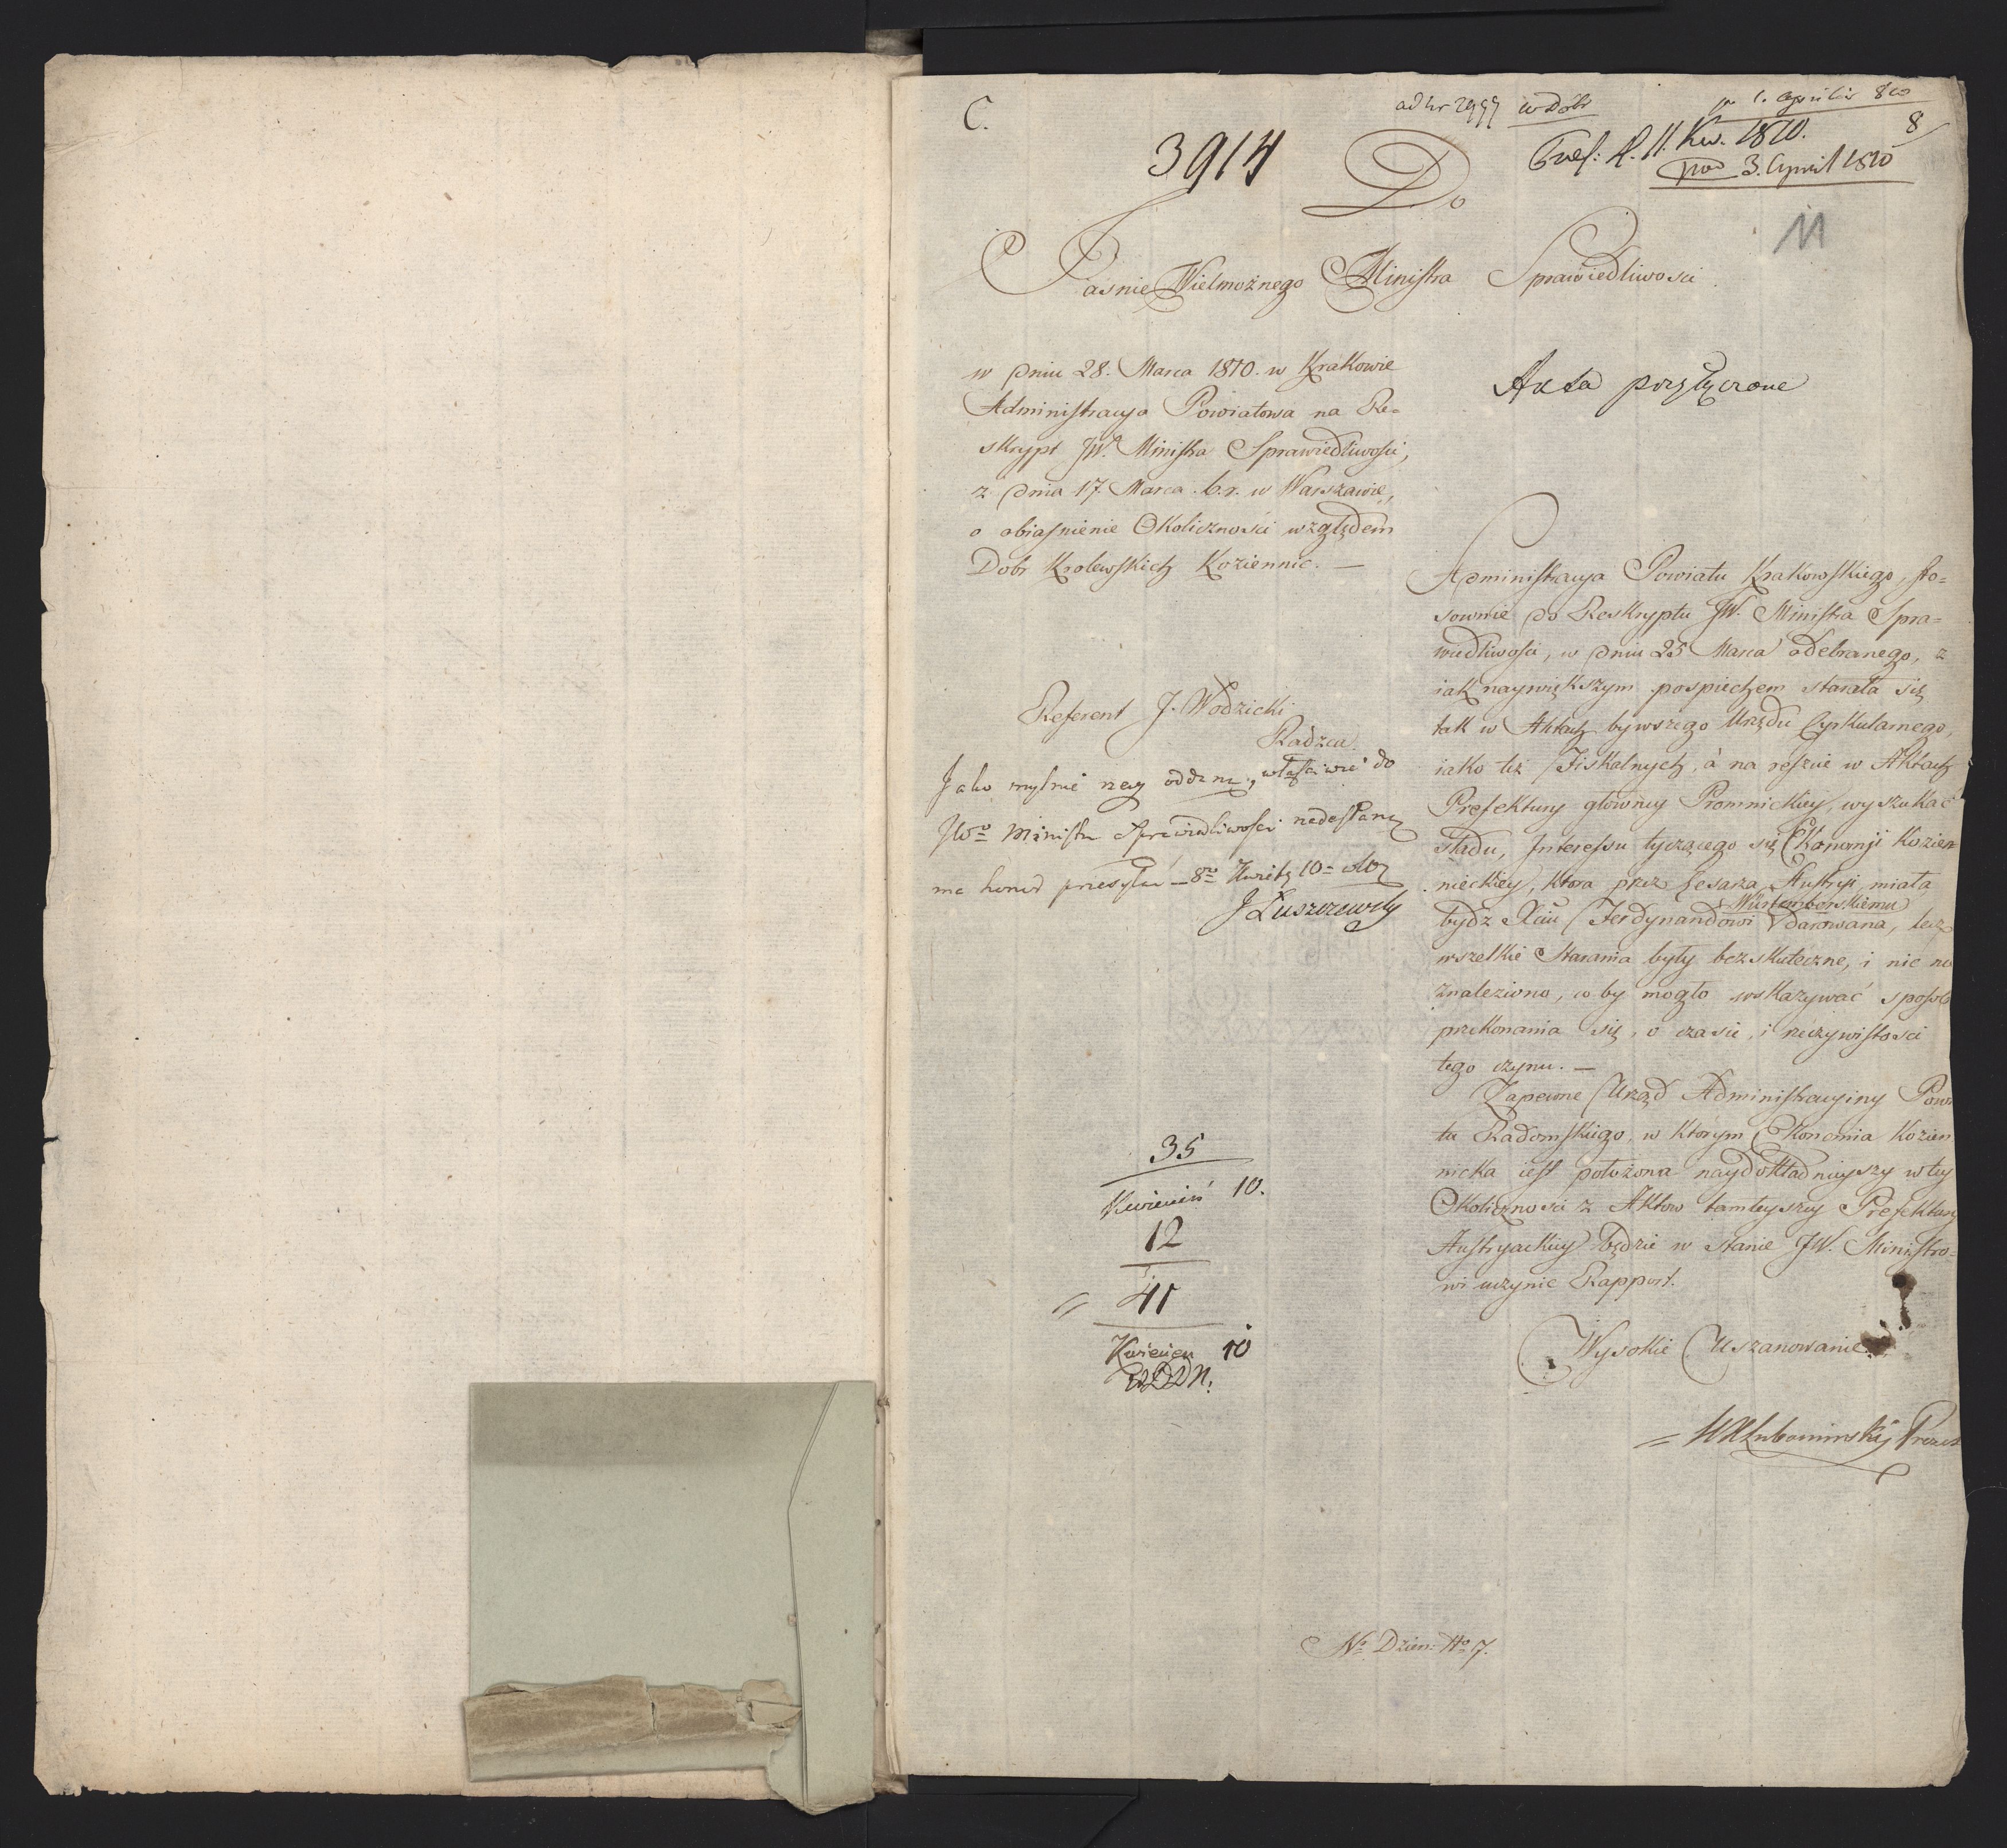 C.
ad Nr 2997 w Dób
1. Aprilis 810
3914
Pres: d. 11. Kw. 1810.
8
3. April 1810
11
Do
Jasnie Wielmożnego Ministra Sprawiedliwosci
w dniu 28. Marca 1810. w Krakowie
Administracya Powiatowa na Re-
skrypt JW. Ministra Sprawiedliwosci,
z dnia 17. Marca b.r. w Warszawie,
o obiasnienie Okoliczności względem
Dobr Krolewskich Koziennic. —
Akta przyłączone
Referent J. Wodzicki
Radzca.
Jako mylnie oddane, właściwie do
JWo Ministra Sprawiedliwosci nadesłane
ma honor przesłać — 8go 10
J Łuszczewsky
Administracya Powiatu Krakowskiego, sto-
sownie do Reskryptu JW. Ministra Spra-
wiedliwosci, w dniu 25 Marca odebranego, z
iak naywiększym pospiechem starała się
tak w Aktach bywszego Urzędu Cyrkularnego,
iako też Fiskalnych, á na reszcie w Aktach
Prefektury głowney Promnickiey, wyszukać
sladu, Interessu tyczącego się Ekonomji Kozien
nieckiey, ktora przez Cesarza Austryi miała
bydz Xciu Ferdynandowi Würtemberskiemu darowana, lecz
wszelkie Starania były bezskuteczne, i nic nie
znaleziono, co by mogło wskazywać sposob
przekonania się, o czasie, i rzeczywistosci
tego czynu. —
Zapewne Urząd Administracyiny Powia
tu Radomskiego, w ktorym Ekonomia Kozien
nicka iest położona naydokładnieyszy w tey
Okolicznosci z Aktow tamteyszey Prefektury
Austryackiey będzie w stanie JW. Ministro-
wi uczynic Rapport.
Wysokie Uszanowanie
HXLubomirskij Prezes
35
Kwiecień 10.
12
41
Kwiecien 10
WDDN.
No Dzien: No 7.